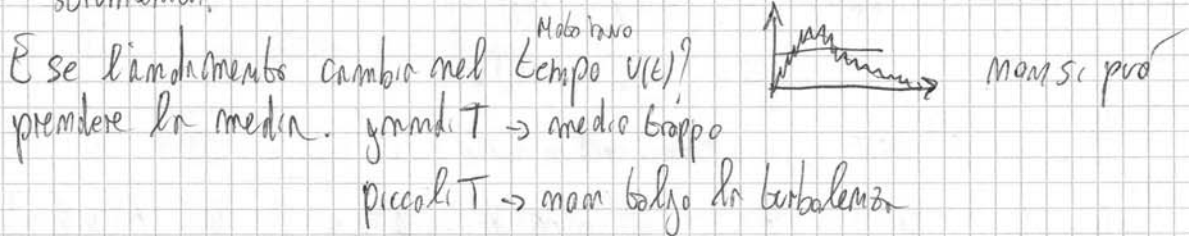 E se l'andamento cambia nel tempo v(t)? non si può
prendere la media. grandi T → medio troppo
piccoli T → non tolgo la turbolenza